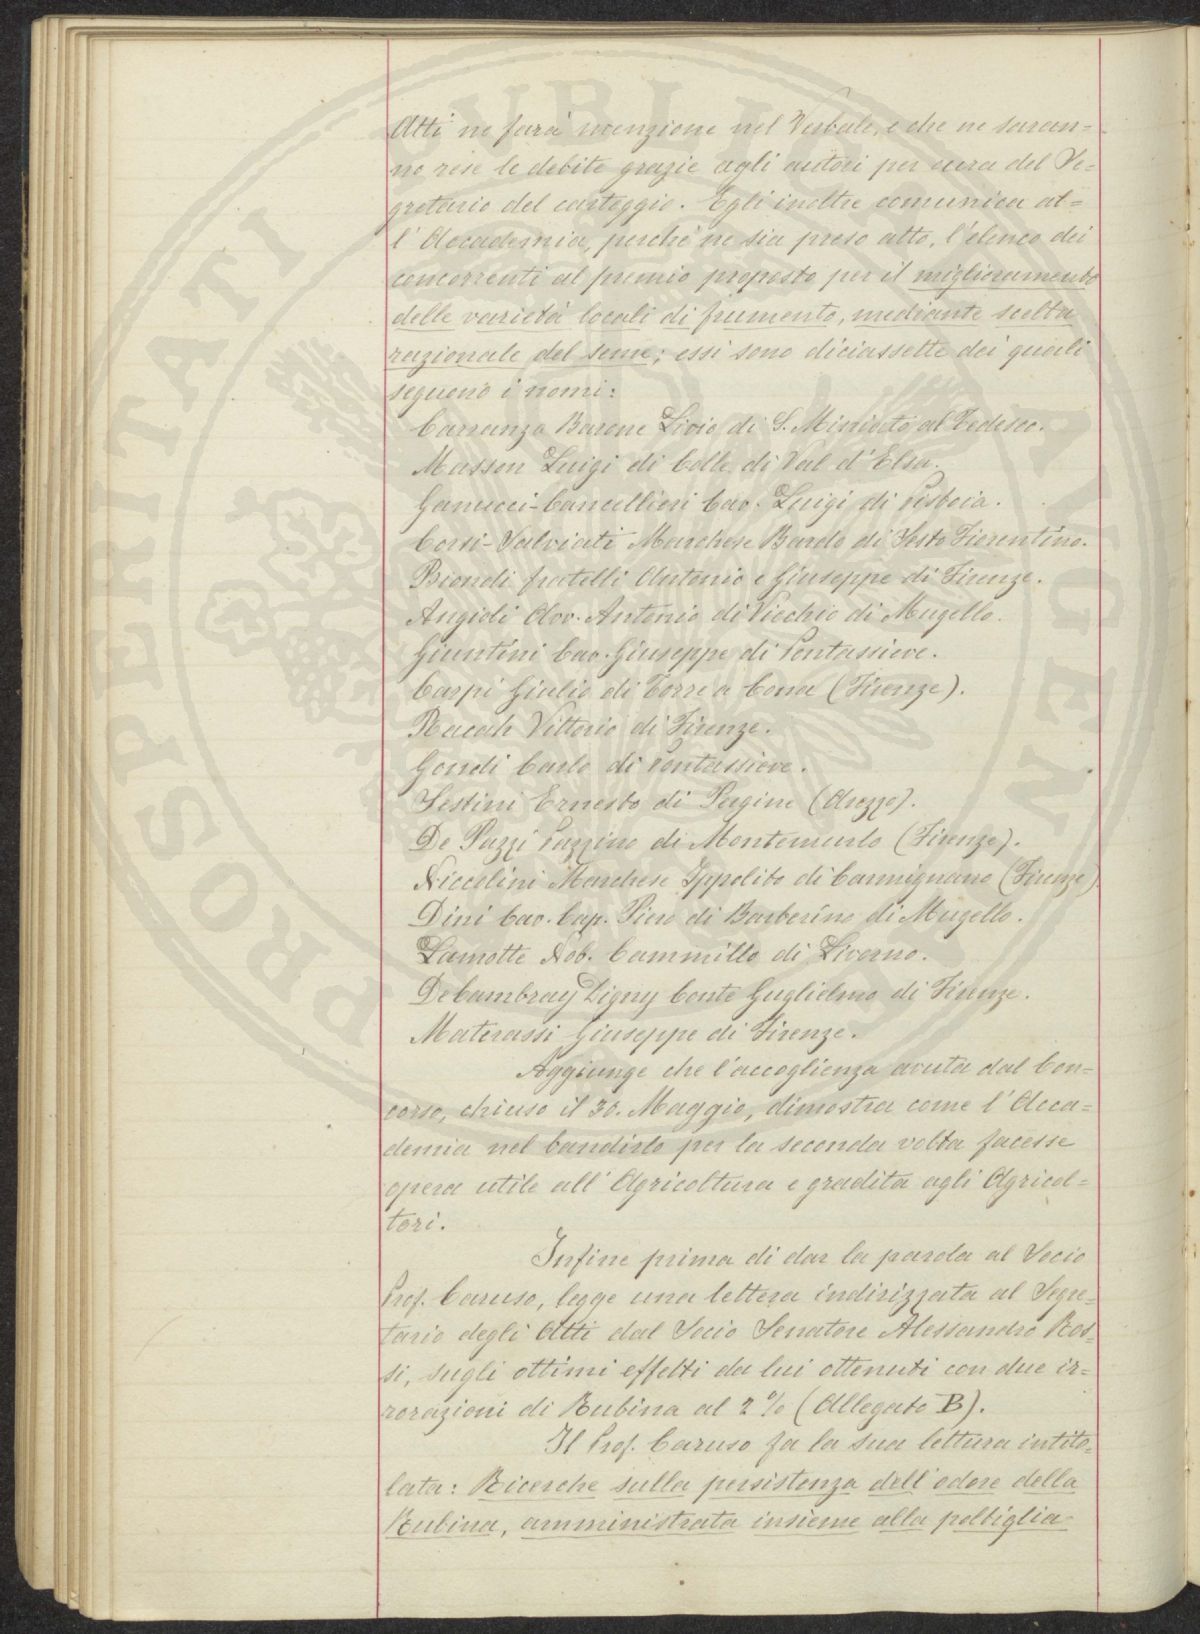 Atti ne farà menzione nel Verbale, e che ne saran=
no rese le debite grazie agli autori per cura del Se=
gretario del carteggio. Egli inoltre comunica al=
l'Accademia, perchè ne sia preso atto, l'elenco dei
concorrenti al premio proposto per il miglioramento
delle varietà locali di frumento, mediante scelta
razionale del seme; essi sono diciassette dei quali
seguono i nomi:
Carranza Barone Livio di S. Miniato al Tedesco.
Masson Luigi di Colle di Val d'Elsa.
Ganucci-Cancellieri Cav. Luigi di Pistoia.
Corsi-Salviati Marchese Bardo di Sesto Fiorentino.
Biondi fratelli Antonio e Giuseppe di Firenze.
Angioli Avv. Antonio di Vicchio di Mugello.
Giuntini Cav. Giuseppe di Pontassieve.
Carpi Giulio di Torre a Cona (Firenze).
Racah Vittorio di Firenze.
Gondi Carlo di Pontassieve.
Sestini Ernesto di Pergine (Arezzo).
De Pazzi Pazzino di Montemurlo (Firenze).
Niccolini Marchese Ippolito di Carmignano (Firenze)
Dini Cav. Cap. Piero di Barberino di Mugello.
Lamotte Nob. Cammillo di Livorno.
De Cambray Digny Conte Guglielmo di Firenze.
Materassi Giuseppe di Firenze.
Aggiunge che l'accoglienza avuta dal Con=
corso, chiuso il 30. Maggio, dimostra come l'Acca=
demia nel bandirlo per la seconda volta facesse
opera utile all'Agricoltura e gradita agli Agricol=
tori.
Infine prima di dar la parola al Socio
Prof. Caruso, legge una lettera indirizzata al Segre=
tario degli Atti dal Socio Senatore Alessandro Ros=
si, sugli ottimi effetti da lui ottenuti con due ir=
rorazioni di Rubina al 2% (Allegato B).
Il Prof. Caruso fa la sua lettura intito=
lata: Ricerche sulla persistenza dell'odore della
Rubina, amministrata insieme alla poltiglia
PROSPERITATI PVBLICAE AVGENDAE